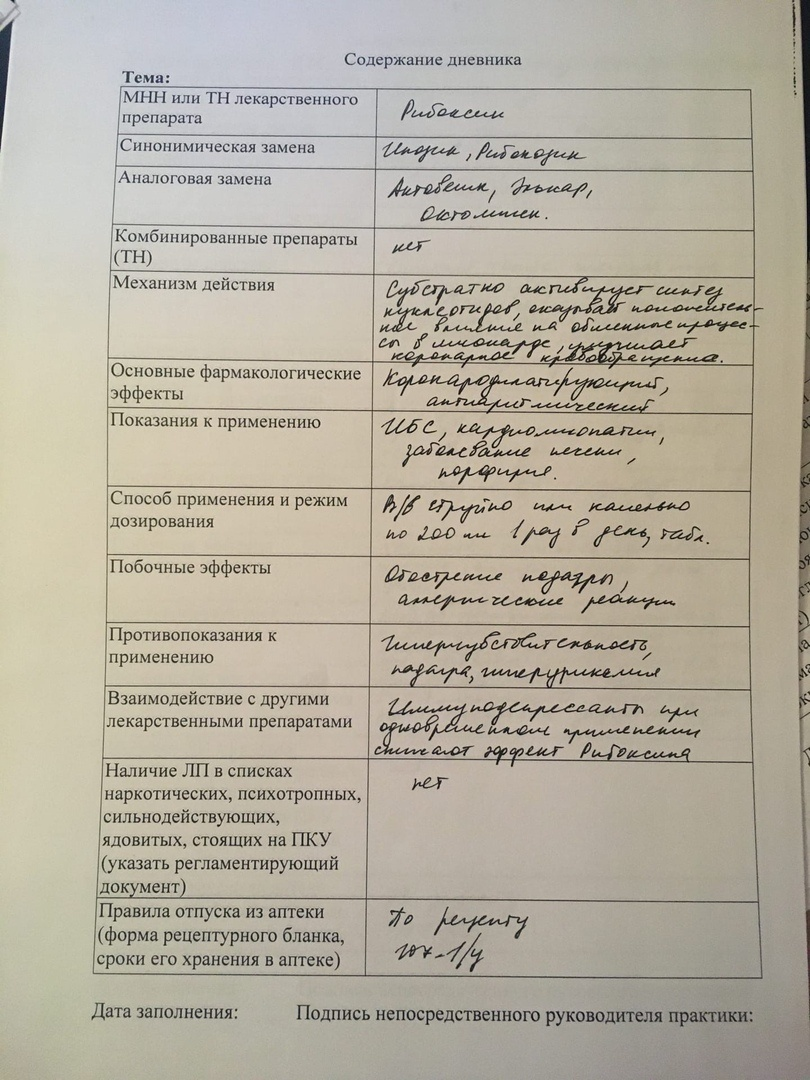 Содержание дневника
Тема:
МНН или ТН лекарственного
препарата
Рибоксин
Синонимическая замена
Инозин, Рибонозин
Аналоговая замена
Актовегин, Элькар,
Октолипен.
Комбинированные препараты
(ТН)
нет
Механизм действия
Субстратно активирует синтез
нуклеотидов, оказывает положитель-
ное влияние на обменные процес-
сы в миокарде, улучшает
коронарное кровообращение.
Основные фармакологические
эффекты
Коронародилатирующий,
антиаритмический
Показания к применению
ИБС, кардиомиопатии,
заболевание печени,
порфирия.
Способ применения и режим
дозирования
В/в струйно или капельно
по 200 мл 1 раз в день, табл.
Побочные эффекты
Обострение подагры,
аллергические реакции
Противопоказания к
применению
Гиперчувствительность,
подагра, гиперурикемия
Взаимодействие с другими
лекарственными препаратами
Иммунодепрессанты при
одновременном применении
снижают эффект Рибоксина
Наличие ЛП в списках
наркотических, психотропных,
сильнодействующих,
ядовитых, стоящих на ПКУ
(указать регламентирующий
документ)
нет
Правила отпуска из аптеки
(форма рецептурного бланка,
сроки его хранения в аптеке)
По рецепту
107-1/у
Дата заполнения: Подпись непосредственного руководителя практики: